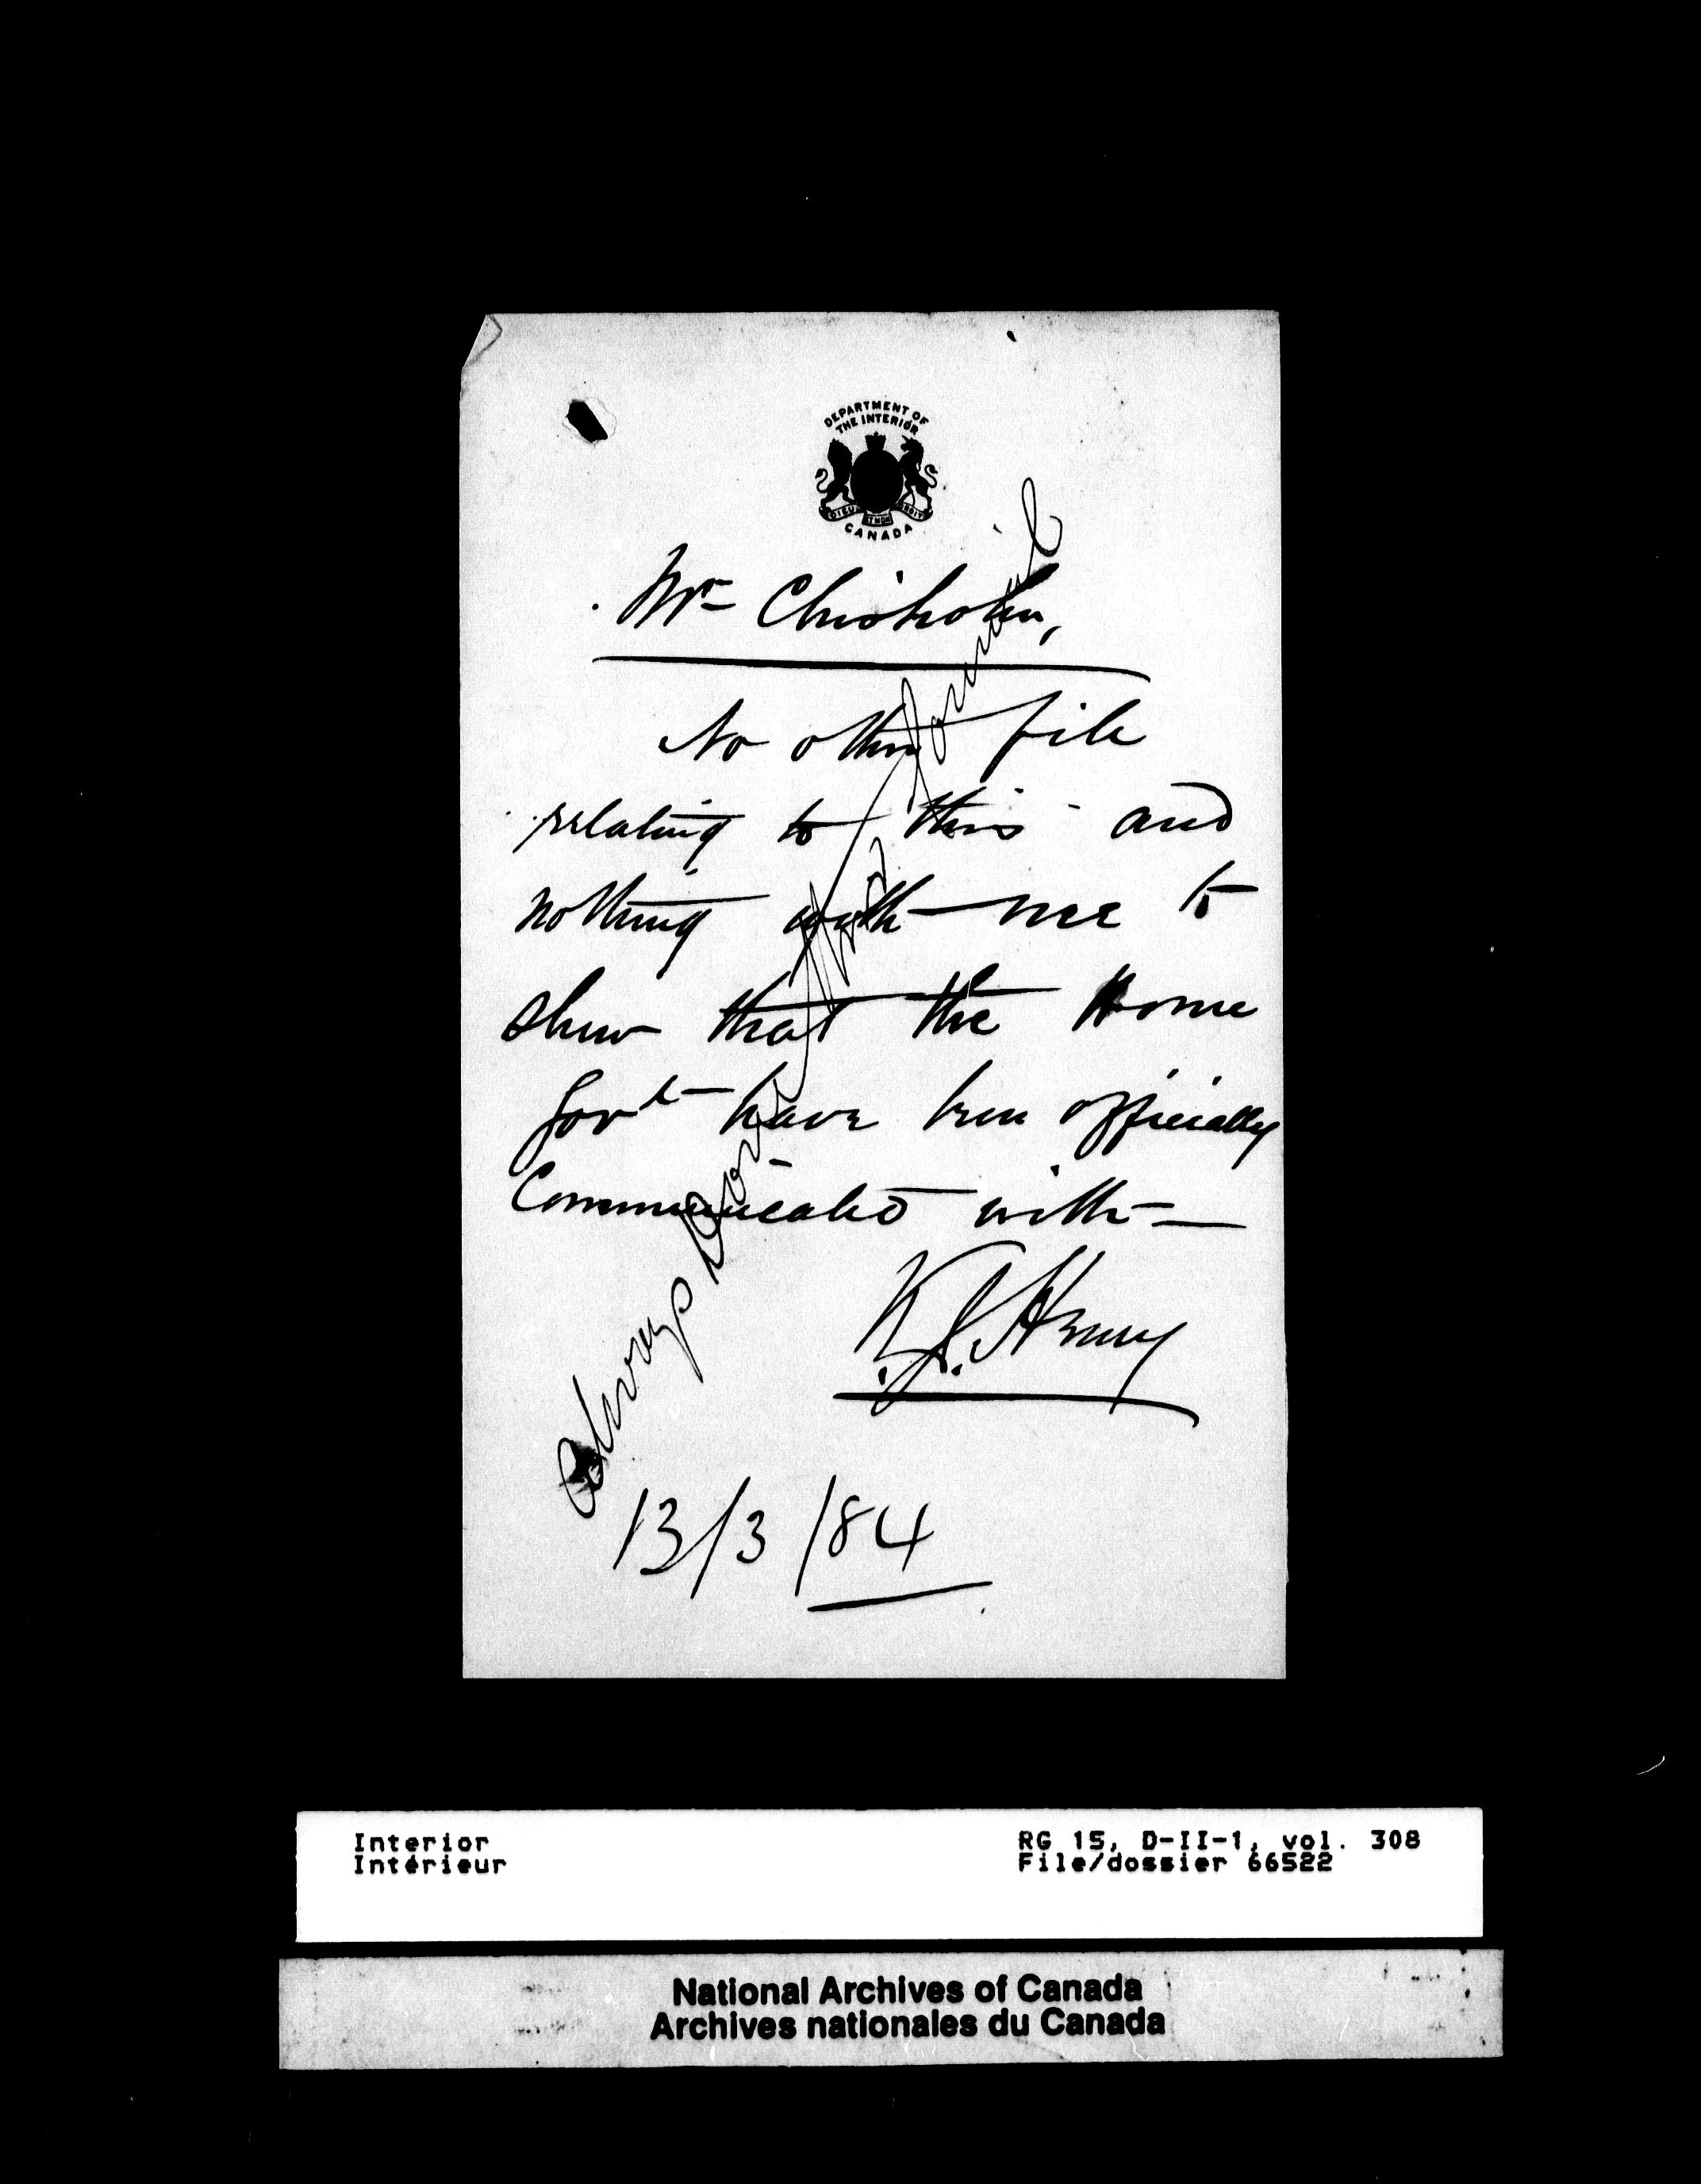 DEPARTMENT OF
THE INTERIOR
DIEU ET MON DROIT
CANADA
Mr Chisholm,
No other file
relating to this and
nothing with me to
show that the Home
Govt have been officially
Communicated with —
K. J. Henry
13/3/84
Always
Interior
Intérieur
RG 15, D-II-1, vol. 308
File/dossier 66522
National Archives of Canada
Archives nationales du Canada